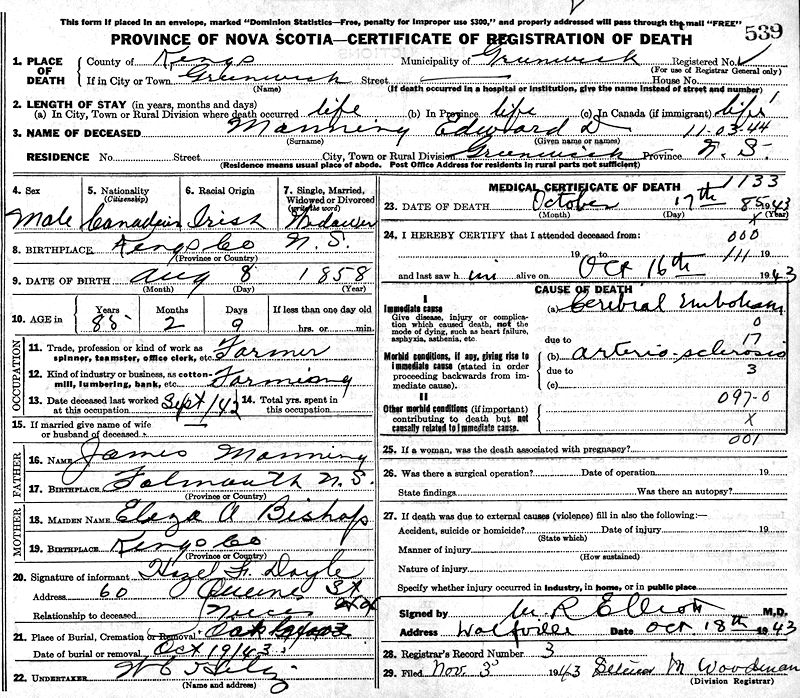 This form if placed in an envelope, marked "Dominion Statistics—Free, penalty for improper use $300," and properly addressed will pass through the mail "FREE"
539
PROVINCE OF NOVA SCOTIA—CERTIFICATE OF REGISTRATION OF DEATH
1. PLACE OF DEATH County of Kings Municipality of Greenwich Registered No.
(For use of Registrar General only)
If in City or Town Greenwich Street House No.
(Name) (If death occurred in a hospital or institution, give the name instead of street and number)
2. LENGTH OF STAY (in years, months and days)
(a) In City, Town or Rural Division where death occurred life (b) In Province life (c) In Canada (if immigrant) life
3. NAME OF DECEASED Manning Edward D 11-03-44
(Surname) (Given name or names)
RESIDENCE No. Street City, Town or Rural Division Greenwich Province N.S.
(Residence means usual place of abode. Post Office Address for residents in rural parts not sufficient)
4. Sex Male
5. Nationality (Citizenship) Canadian
6. Racial Origin Irish
7. Single, Married, Widowed or Divorced (write the word) Widower
8. BIRTHPLACE Kings Co N.S.
(Province or Country)
9. DATE OF BIRTH Aug 8 1858
(Month) (Day) (Year)
10. AGE in Years 85 Months 2 Days 9 If less than one day old hrs. or min.
OCCUPATION
11. Trade, profession or kind of work as spinner, teamster, office clerk, etc. Farmer
12. Kind of industry or business, as cotton-mill, lumbering, bank, etc. Farming
13. Date deceased last worked at this occupation Sept/42 14. Total yrs. spent in this occupation
15. If married give name of wife or husband of deceased
FATHER
16. NAME James Manning
17. BIRTHPLACE Falmouth N.S.
(Province or Country)
MOTHER
18. MAIDEN NAME Eliza A Bishop
19. BIRTHPLACE Kings Co
(Province or Country)
20. Signature of informant F. Doyle
Address 60 Queen St
Relationship to deceased Niece
21. Place of Burial, Cremation or Removal
Date of burial or removal Oct 19/43
22. UNDERTAKER
(Name and address)
MEDICAL CERTIFICATE OF DEATH 1133
23. DATE OF DEATH October 17th 85 1943
(Month) (Day) (Year)
X
24. I HEREBY CERTIFY that I attended deceased from:
000
19 to 111 19
and last saw him alive on Oct 16th 1943
CAUSE OF DEATH
I
Immediate cause
Give disease, injury or complication which caused death, not the mode of dying, such as heart failure, asphyxia, asthenia, etc
(a) Cerebral Embolism
0
due to 17
Morbid conditions, if any, giving rise to immediate cause (stated in order proceeding backwards from immediate cause).
(b) arterio-sclerosis
due to 3
(c)
II
097-0
Other morbid conditions (if important) contributing to death but not causally related to immediate cause.
X
001
25. If a woman, was the death associated with pregnancy?
26. Was there a surgical operation? Date of operation 19
State findings Was there an autopsy?
27. If death was due to external causes (violence) fill in also the following:—
Accident, suicide or homicide? Date of injury 19
(State which)
Manner of injury
(How sustained)
Nature of injury
Specify whether injury occurred in industry, in home, or in public place
Signed by R Elliott M.D.
Address Wolfville Date Oct 18th 1943
28. Registrar's Record Number 3
29. Filed Nov. 3 1943 M Woodman
(Division Registrar)